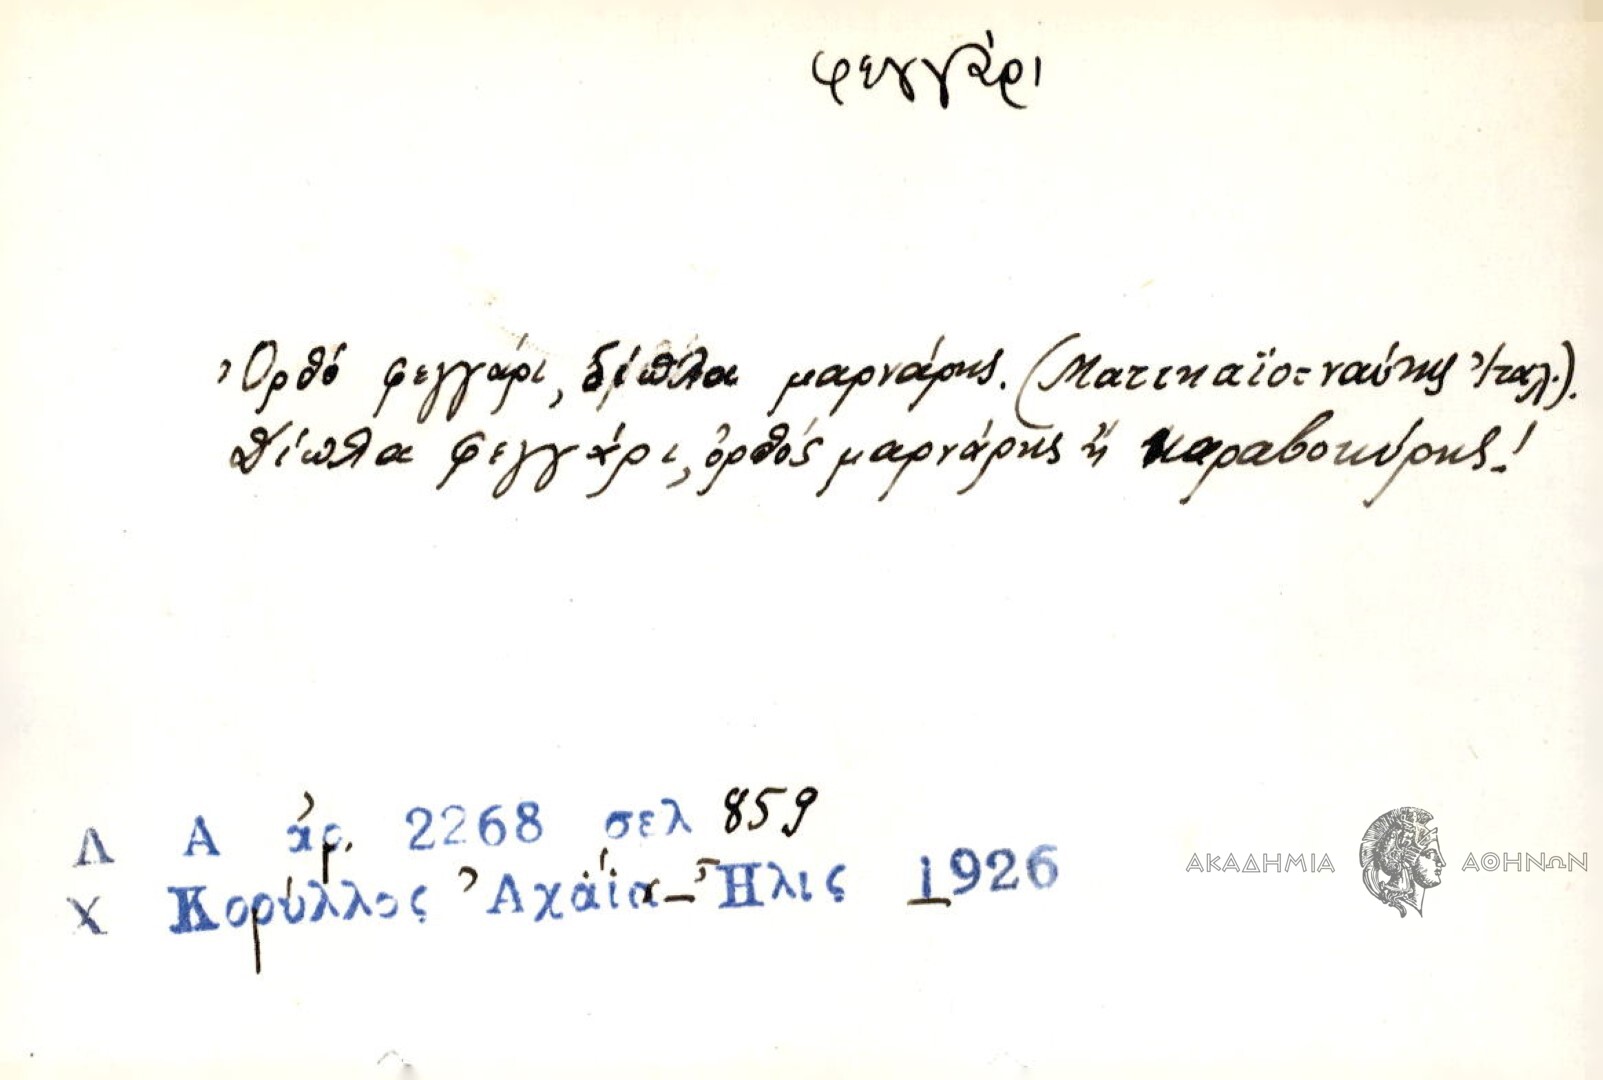 φεγγάρι
Ὀρθό φεγγάρι, δίπλα μαρνάρης. (Ματτκαϊο = ναύτης Ἰταλ.).
Δίπλα φεγγάρι, ὀρθός μαρνάρης ἤ καραβοκύρης!
Λ Α ἀρ. 2268 σελ 859
Χ Κορύλλος Ἀχαΐα - Ἦλις 1926
ΑΚΑΔΗΜΙΑ ΑΘΗΝΩΝ